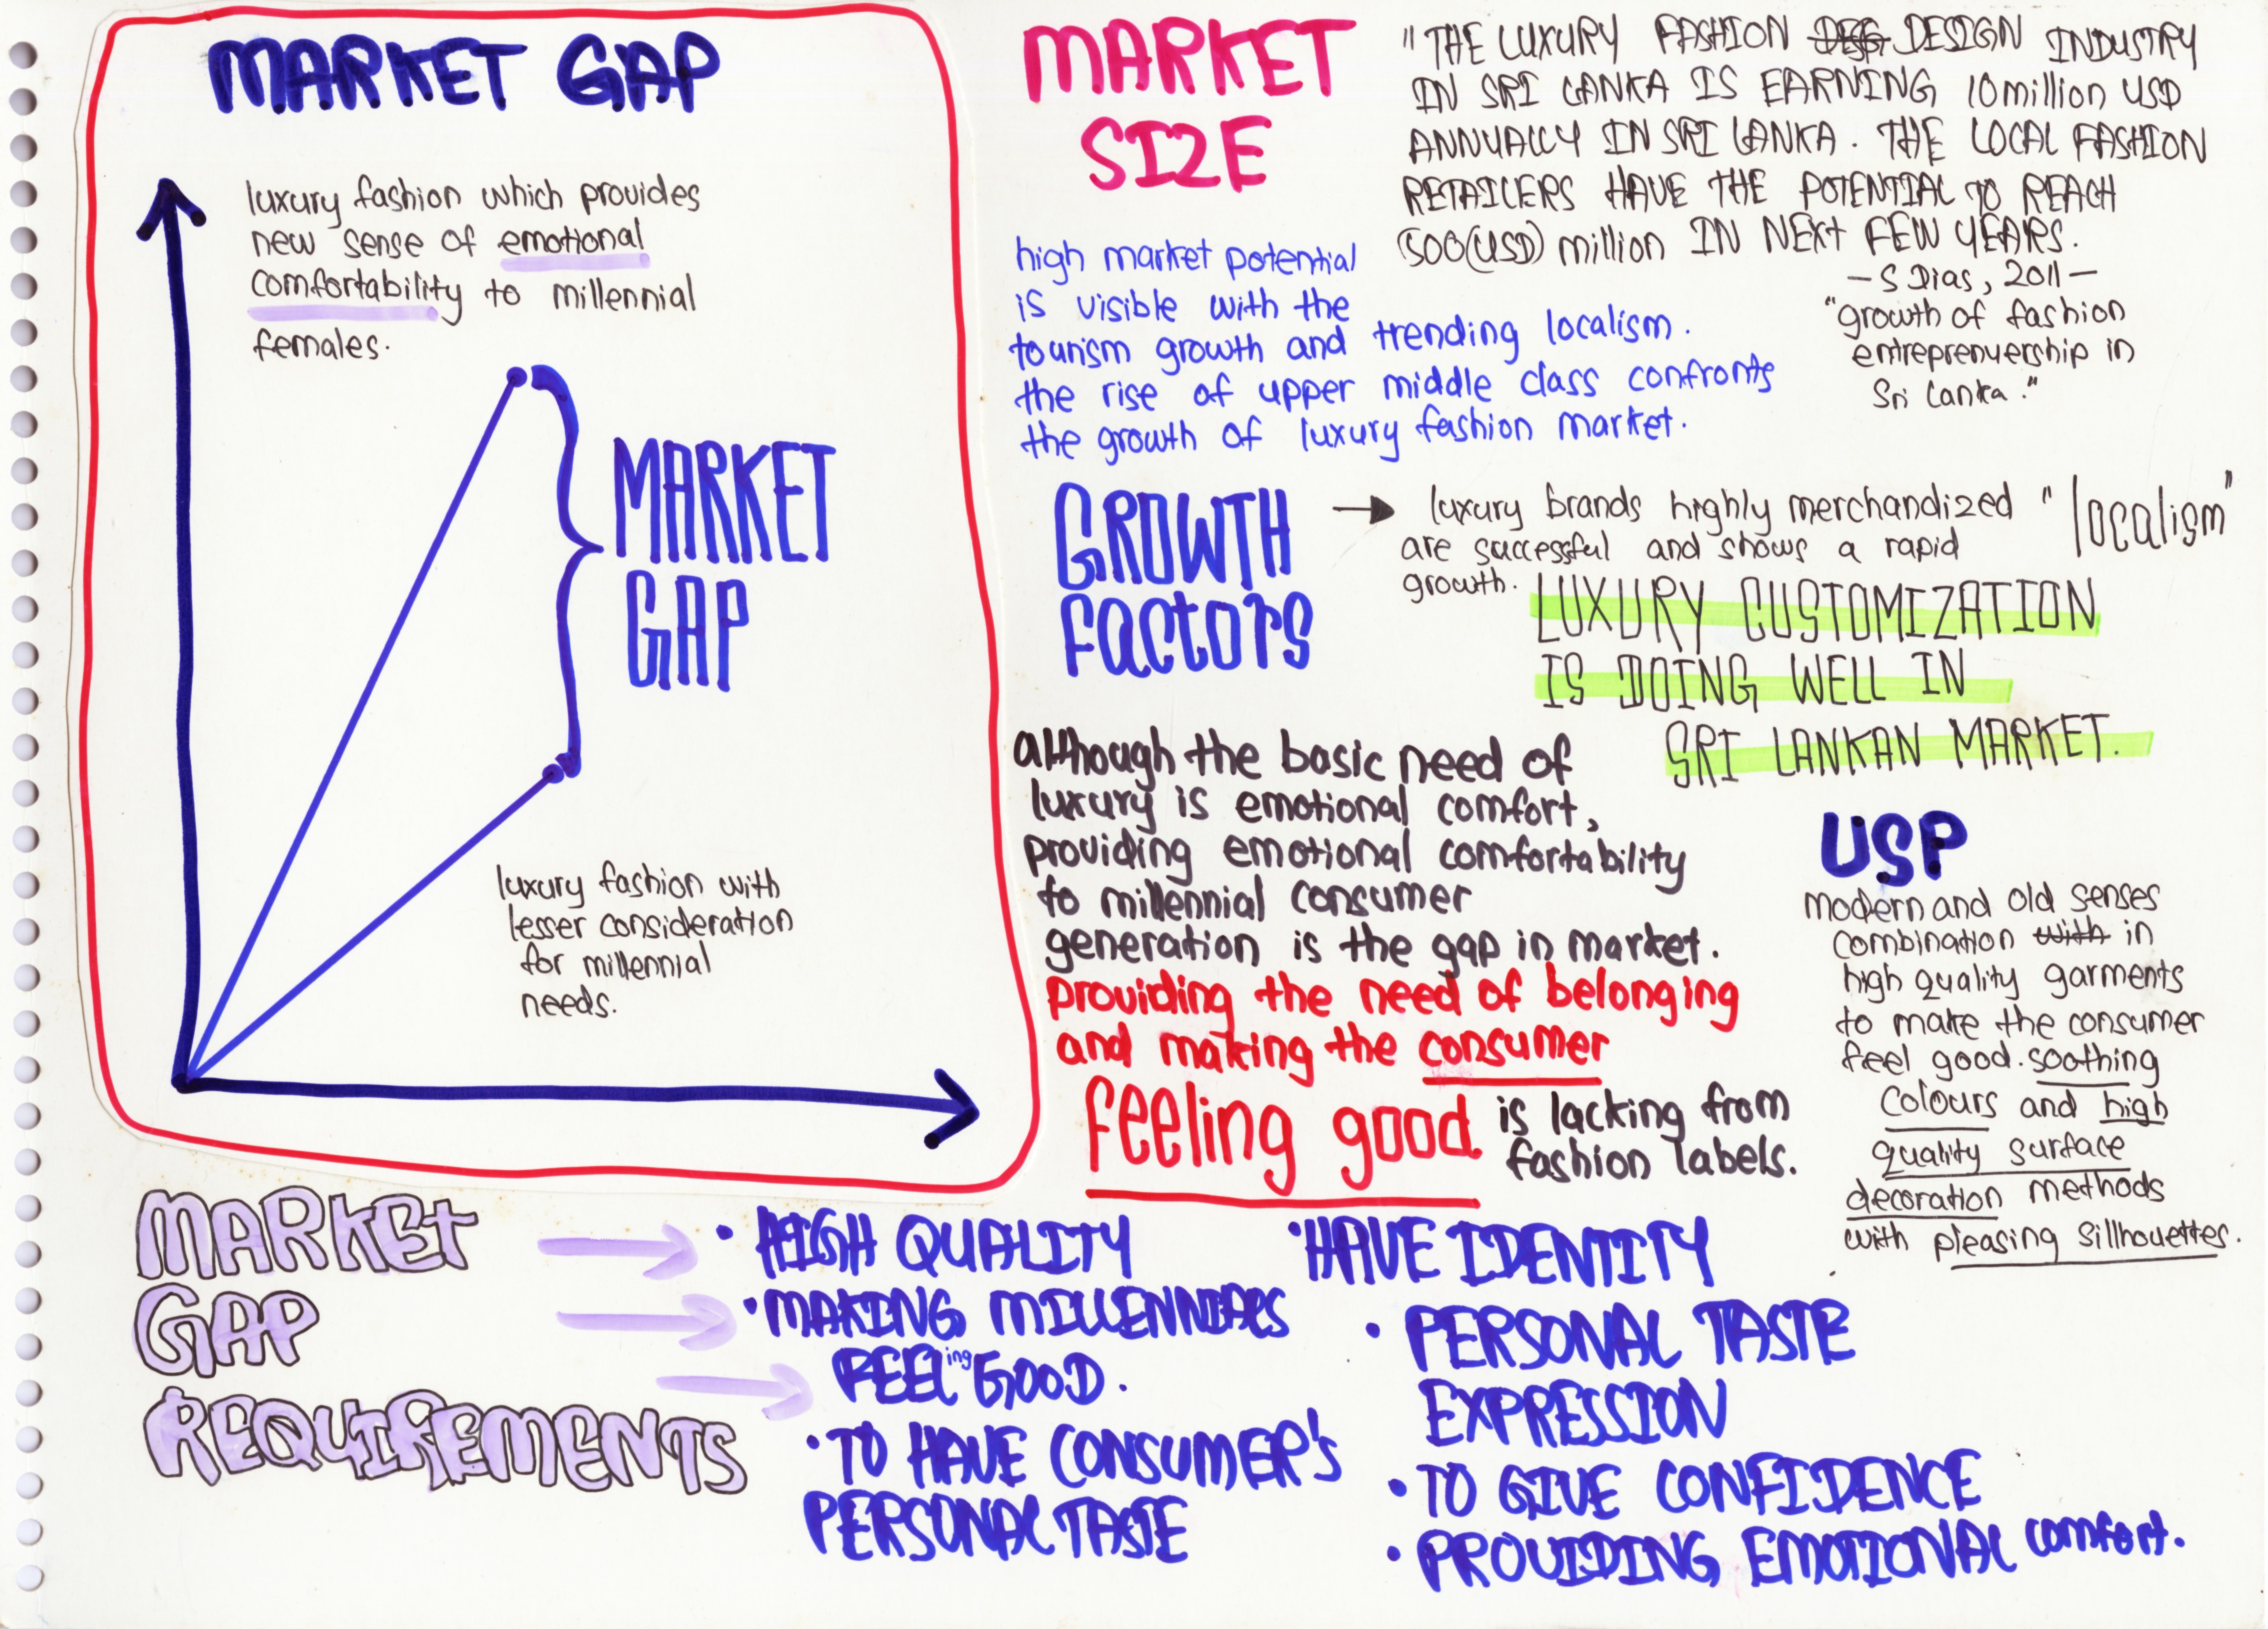 MARKET GAP
luxury fashion which provides
new sense of emotional
comfortability to millennial
females.
MARKET
GAP
luxury fashion with
lesser consideration
for millennial
needs.
MARKET
SIZE
"THE LUXURY FASHION DESIGN INDUSTRY
IN SRI LANKA IS EARNING 10million USD
ANNUALLY IN SRI LANKA. THE LOCAL FASHION
RETAILERS HAVE THE POTENTIAL TO REACH
500(USD) million IN NEXt FEW YEARS.
- S Dias, 2011 -
"growth of fashion
entreprenuership in
Sri Lanka."
high market potential
is visible with the
tourism growth and trending localism.
the rise of upper middle class confronts
the growth of luxury fashion market.
GROWTH
Factors
→ luxury brands highly merchandized "localism"
are successful and shows a rapid
growth.
LUXURY CUSTOMIZATION
IS DOING WELL IN
SRI LANKAN MARKET.
although the basic need of
luxury is emotional comfort,
providing emotional comfortability
to millennial consumer
generation is the gap in market.
providing the need of belonging
and making the consumer
feeling good. is lacking from
fashion labels.
USP
modern and old senses
combination with in
high quality garments
to make the consumer
feel good. soothing
colours and high
quality surface
decoration methods
with pleasing sillhouettes.
MARKEt
GAP
REQUIREMENTS
• HIGH QUALITY
• MAKING MILLENNIALS
FEELing GOOD.
• TO HAVE CONSUMER'S
PERSONAL TASTE
• HAVE IDENTITY
• PERSONAL TASTE
EXPRESSION
• TO GIVE CONFIDENCE
• PROVIDING EMOTIONAL comfort.